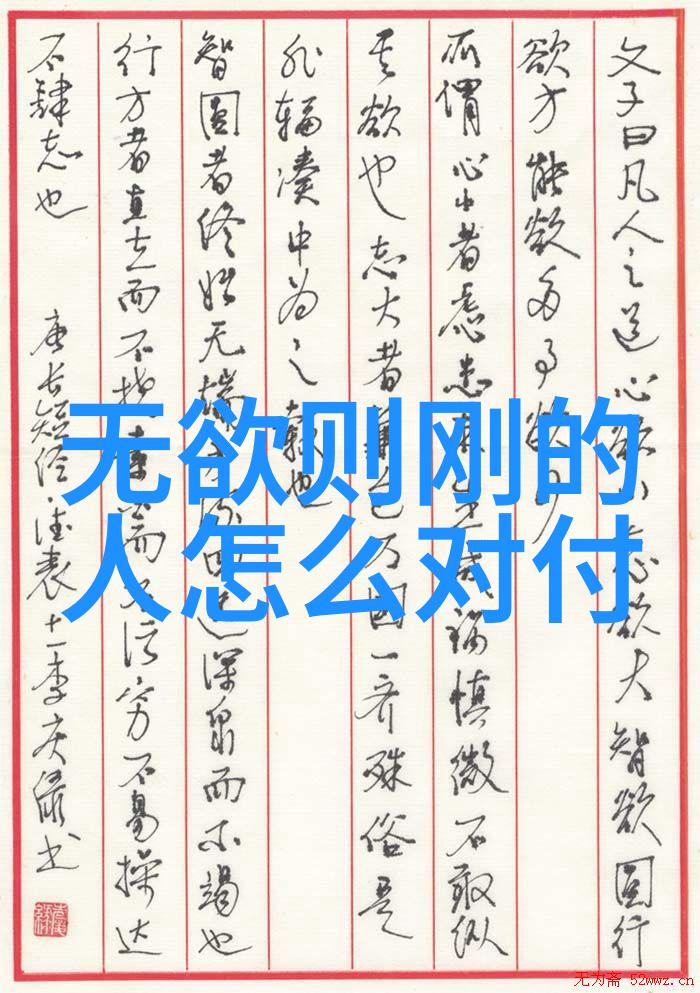 文子曰凡人之道心欲小志欲大智欲圆行
欲方能欲多事欲少
所谓心小者虑患未生戒祸慎微不敢纵
其欲也志大者兼包万国一齐殊俗是
非辐凑中为之毂也
智圆者终始无端方流四远深泉而不竭也
行方者直立而不挠素白而不污穷不易操达
不肆志也
唐长短经·德表十一李庆绿书
无欲则刚的
人怎么对付
无为斋 52wwz.cn